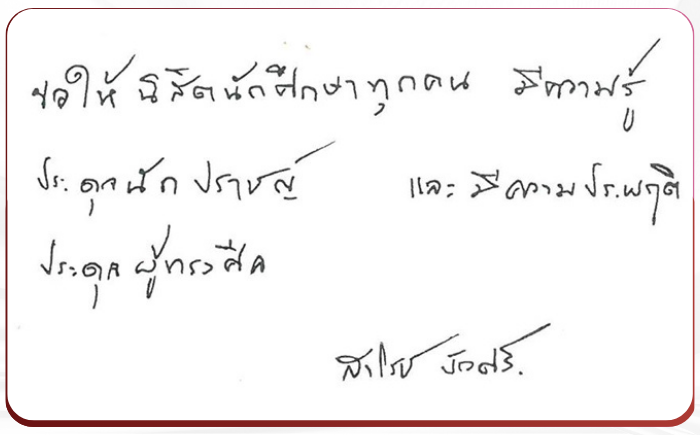 ขอให้ นิสิตนักศึกษาทุกคน มีความรู้
ประดุจนักปราชญ์ และ มีความประพฤติ
ประดุจผู้ทรงศีล
สาโรช บัวศรี.